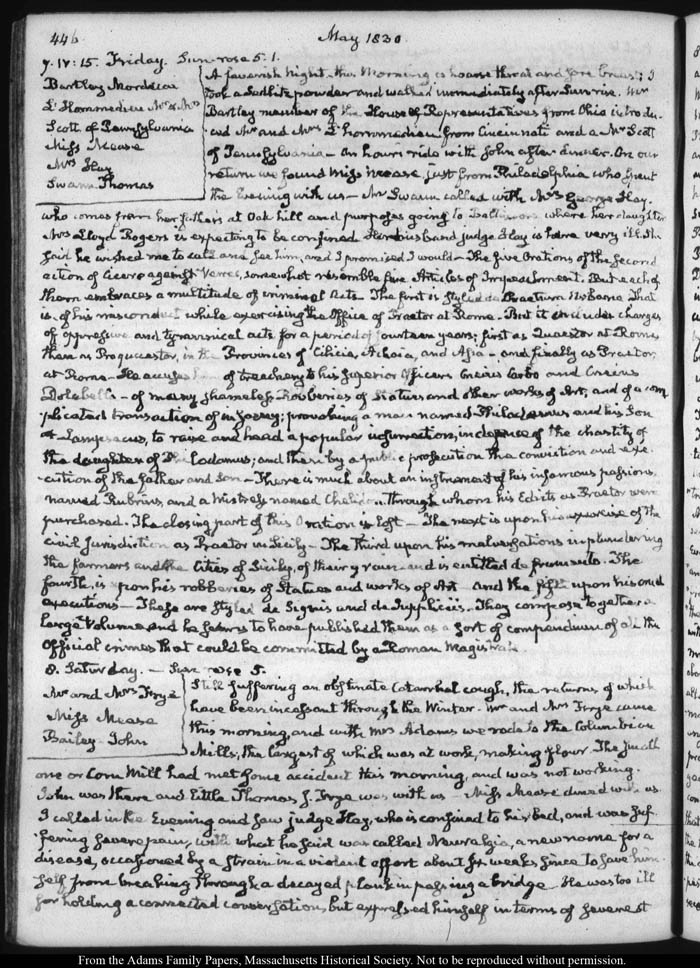 446
May 1830
7. IV:15. Friday. Sun rose 5.1.
Bartley Mordecai
L'Hommedieu Mr & Mrs
Scott of Pennsylvania
Miss Mease
Mrs Hay
Swann Thomas
A feverish Night. this Morning a hoarse throat and sore breast; I
took a Sedlitz powder and walked immediately after Sunrise. Mr
Bartley member of the House of Representatives from Ohio introdu-
ced Mr and Mrs L'hommedieu from Cincinnati and a Mr Scott
of Pennsylvania — An hours ride with John after dinner. On our
return we found Miss Mease just from Philadelphia who spent
the Evening with us — Mr Swann called with Mrs George Hay.
who comes from her father's at Oak hill and purposes going to Baltimore where her daughter
Mrs Lloyd Rogers is expecting to be confined Her husband judge Hay is here very ill. She
said he wished me to call and see him, and I promised I would — The five Orations of the second
action of Cicero against Verres, somewhat resemble five Articles of Impeachment. But each of
them embraces a multitude of criminal Acts. The first is styled de Praetura Urbana That
is of his misconduct while exercising the Office of Praetor at Rome — But it includes charges
of oppressive and tyrannical acts for a period of fourteen years; first as Quaestor at Rome
then as Proquaestor, in the Provinces of Cilicia, Achaia, and Asia — and finally as Praetor,
at Rome — He accuses him of treachery to his superior Officers Cneius Carbo and Cneius
Dolabella — of many shameless Robberies of Statues and other works of Art, and of a com
plicated transaction of in Lampsacus, to raise and head a popular insurrection, in defence of the chastity of
the daughter of Philodamus; and then by a public prosecution the conviction and exe-
cution of the father and Son — There is much about an instrument of his infamous passions
named Rubrius, and a Mistress named Chelidon. through whom his Edicts as Praetor were
purchased. The closing part of this Oration is lost — The next is upon his exercise of the
civil Jurisdiction as Praetor in Sicily — The third upon his malversations in plundering
the farmers and the Cities of Sicily, of their and is entitled de frumento. The
fourth, is upon his robberies of Statues and works of Art — and the fifth upon his
executions — These are styled de Signis and de Suppliciis. They compose together a
large volume and he seems to have published them as a sort of compendium of all the
Official crimes that could be committed by a Roman Magistrate.
8. Saturday. — Sun rose 5.
Mr and Mrs Frye
Miss Mease
Bailey John
Still suffering an obstinate Catarrhal cough, the returns of which
have been incessant through the Winter. Mr and Mrs Frye came
this morning, and with Mrs Adams we rode to the Columbian
Mills, the largest of which was at work, making flour. The small
one or Corn Mill had met some accident this morning, and was not working.
John was there and little Thomas J. Frye was with us — Miss Mease dined with us
I called in the Evening and saw judge Hay, who is confined to his bed, and was suf-
fering severe pain, with what he said was called Neuralgia, a new name for a
disease, occasioned by a strain in a violent effort about six weeks since to save him
self from breaking through a decayed plank in passing a bridge. He was too ill
for holding a connected conversation, but expressed himself in terms of severest
From the Adams Family Papers, Massachusetts Historical Society. Not to be reproduced without permission.